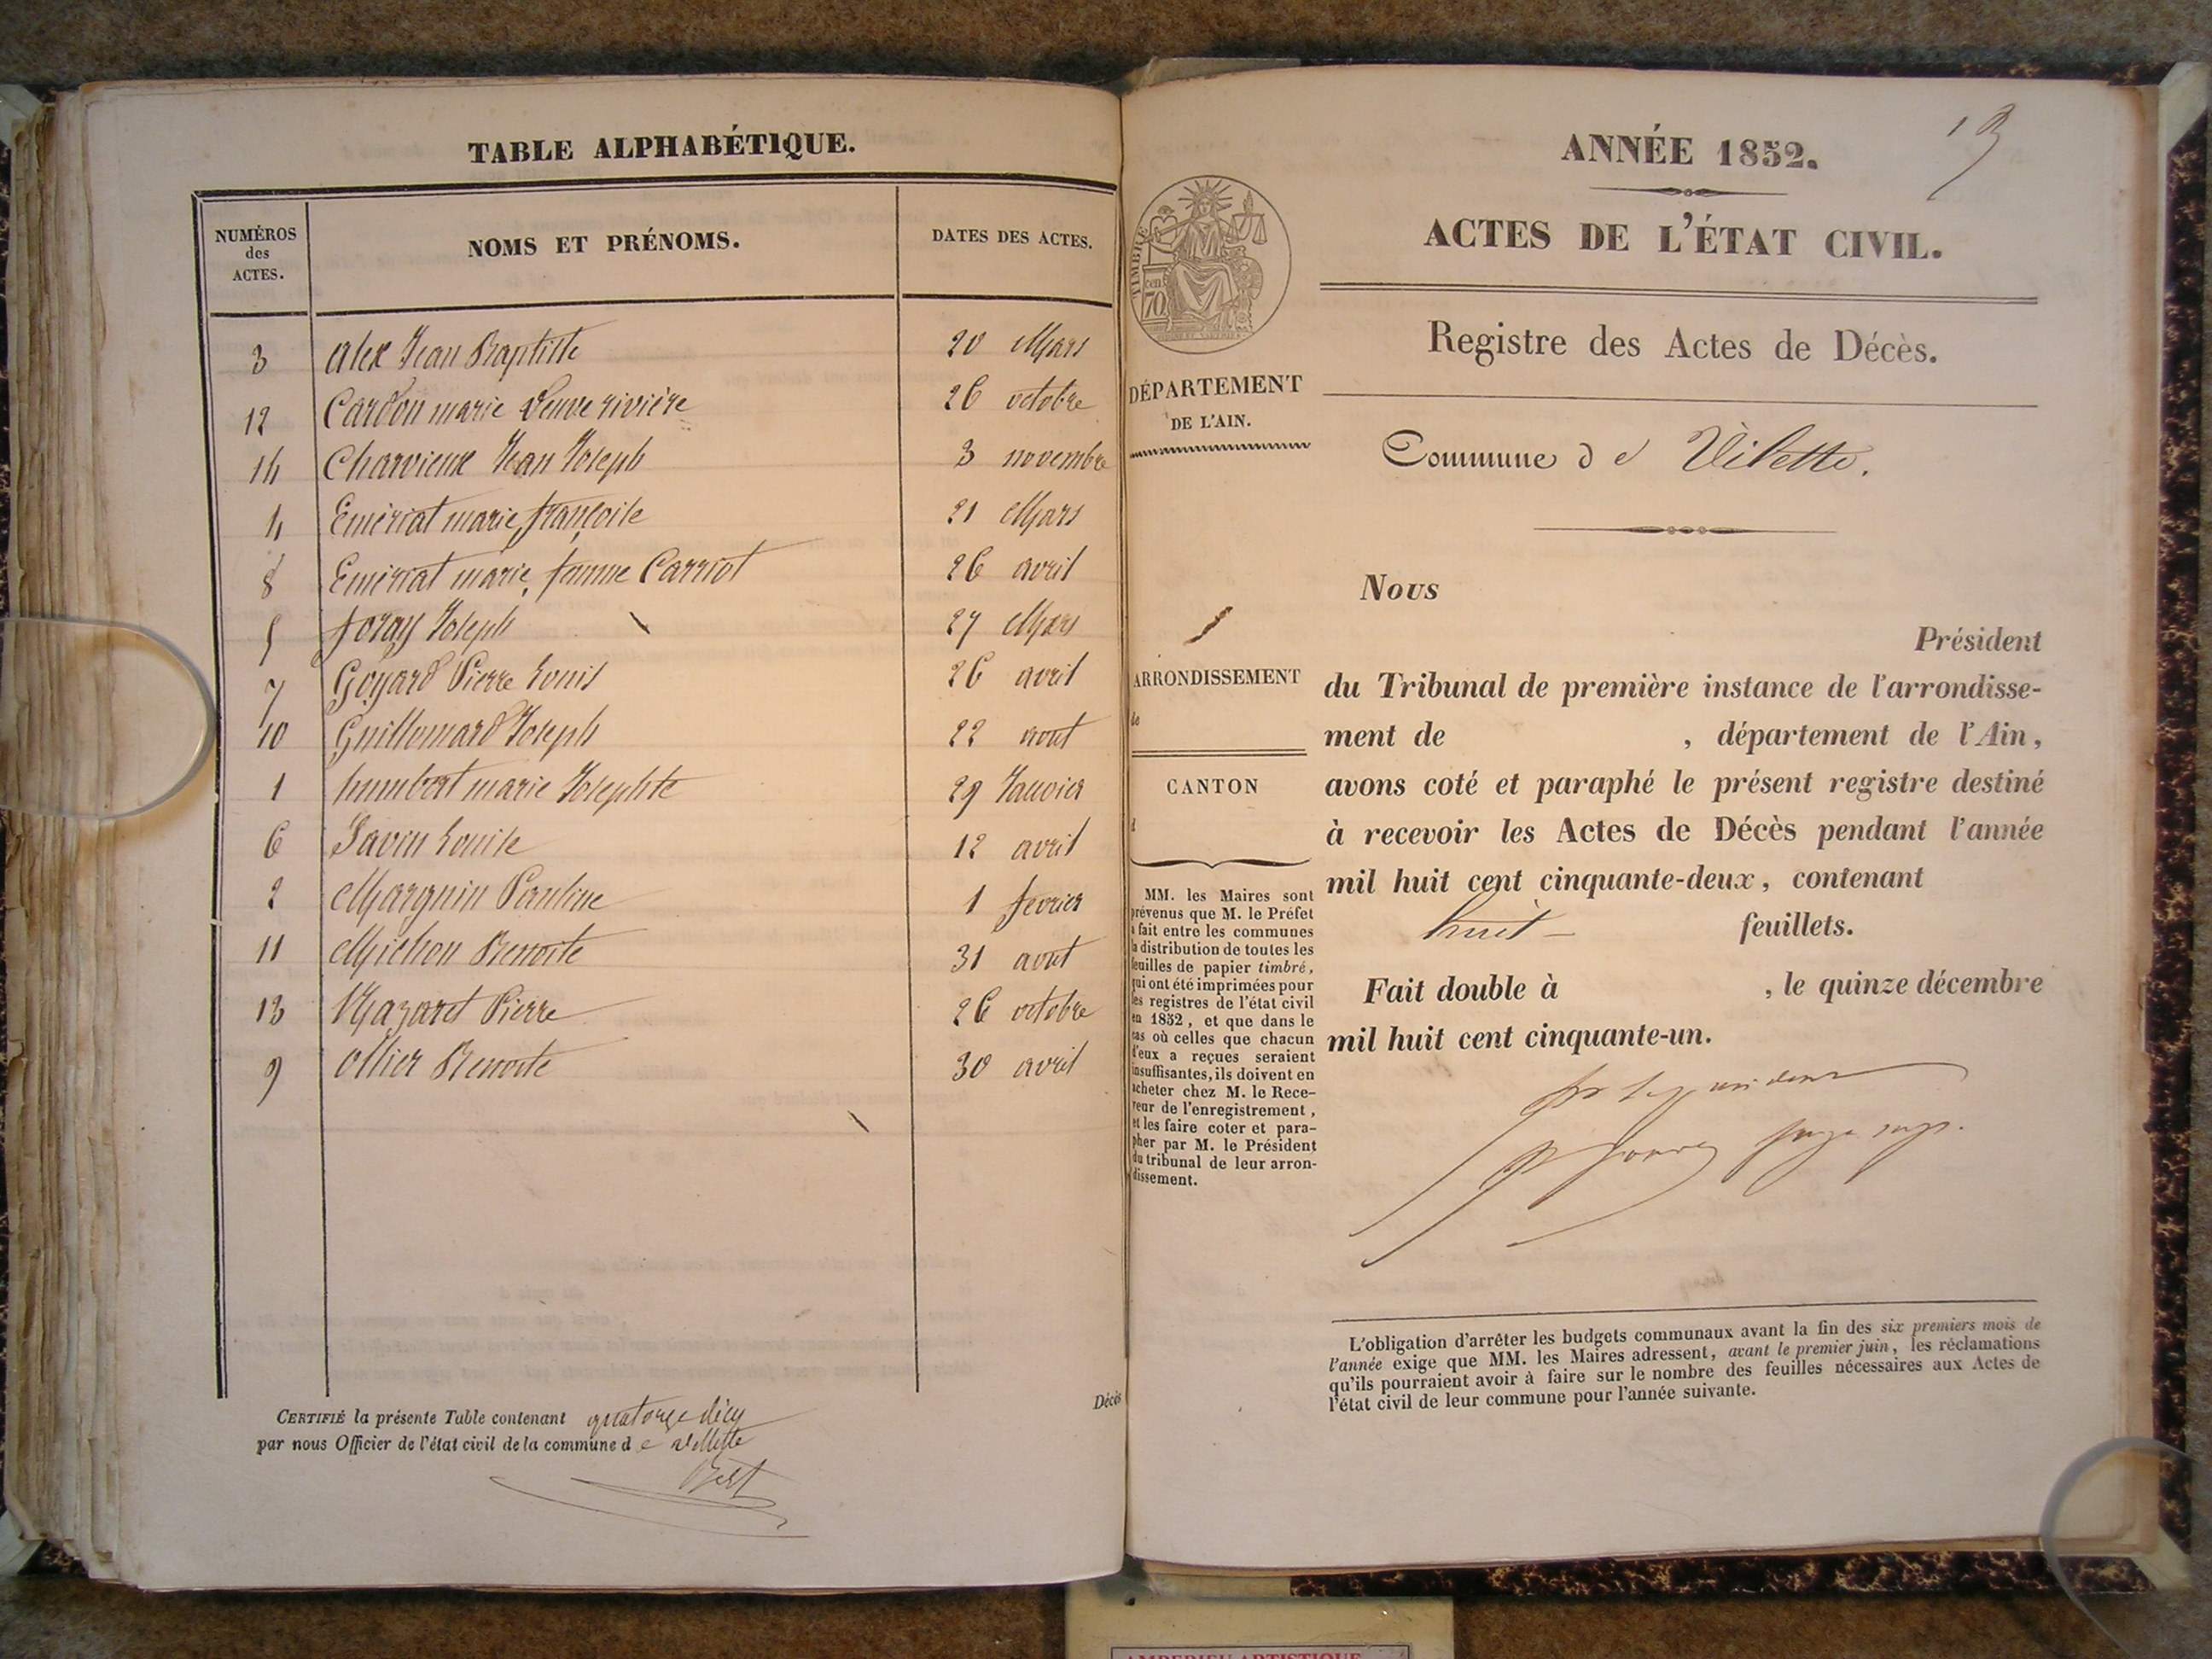 TABLE ALPHABÉTIQUE.
NUMÉROS des ACTES. NOMS ET PRÉNOMS. DATES DES ACTES.
3 Alex Jean Baptiste 20 Mars
12 Cardon marie Veuve rivière 26 octobre
14 Charvieux Jean Joseph 3 novembre
4 Emeriat marie françoise 21 Mars
8 Emeriat marie, femme Carriot 26 avril
5 foray Joseph 27 Mars
7 Goyard Pierre Louis 26 avril
10 Guillemard Joseph 22 aout
1 humbert marie Josephte 29 Janvier
6 Javin Louise 12 avril
2 Marguin Pauline 1 fevrier
11 Michon Benoite 31 aout
13 Nazaret Pierre 26 octobre
9 Ollier Benoite 30 avril
CERTIFIÉ la présente Table contenant quatorze décès
par nous Officier de l'état civil de la commune de Villette
Décès
13
ANNÉE 1852.
ACTES DE L'ÉTAT CIVIL.
TIMBRE
cent. 70
Registre des Actes de Décès.
DÉPARTEMENT
DE L'AIN.
Commune de Vilette.
Nous
Président
ARRONDISSEMENT
de
CANTON
d
du Tribunal de première instance de l'arrondisse-
ment de , département de l'Ain,
avons coté et paraphé le présent registre destiné
à recevoir les Actes de Décès pendant l'année
mil huit cent cinquante-deux, contenant
huit feuillets.
Fait double à , le quinze décembre
mil huit cent cinquante-un.
MM. les Maires sont
prévenus que M. le Préfet
a fait entre les communes
la distribution de toutes les
feuilles de papier timbré,
qui ont été imprimées pour
les registres de l'état civil
en 1852, et que dans le
cas où celles que chacun
d'eux a reçues seraient
insuffisantes, ils doivent en
acheter chez M. le Rece-
veur de l'enregistrement,
et les faire coter et para-
pher par M. le Président
du tribunal de leur arron-
dissement.
L'obligation d'arrêter les budgets communaux avant la fin des six premiers mois de
l'année exige que MM. les Maires adressent, avant le premier juin, les réclamations
qu'ils pourraient avoir à faire sur le nombre des feuilles nécessaires aux Actes de
l'état civil de leur commune pour l'année suivante.
AMBERIEU ARTISTIQUE